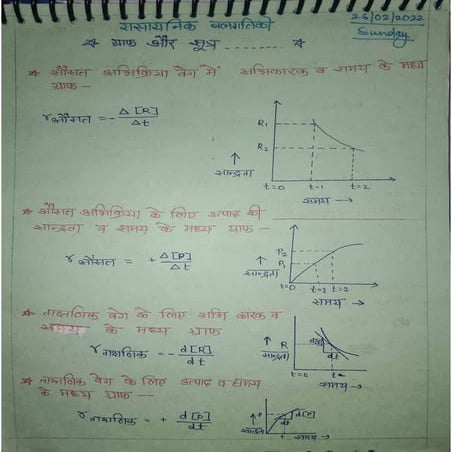 रासायनिक बलगतिकी
26/02/2022
Sunday
ग्राफ और सूत्र ........
* औसत अभिक्रिया वेग में अभिकारक व समय के मध्य
ग्राफ –
r औसत = - Δ[R] / Δt
R₁
R₂
↑
सान्द्रता
t=0 t=1 t=2
समय →
* औसत अभिक्रिया के लिए उत्पाद की
सान्द्रता व समय के मध्य ग्राफ –
r औसत = + Δ[P] / Δt
P₂
P₁
↑
सान्द्रता
t=0 t=1 t=2
समय →
* ताक्षणिक वेग के लिए अभि कारक व
समय के मध्य ग्राफ
r ताक्षणिक = - d[R] / dt
↑ R
सान्द्रता
dt
t=0
समय →
* ताक्षणिक वेग के लिए उत्पाद व समय
के मध्य ग्राफ –
r ताक्षणिक = + d[P] / dt
↑ P
d[P]
dt
सान्द्रता
t
समय →